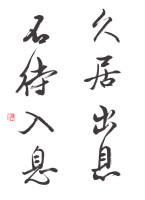 久居出息
石待入息